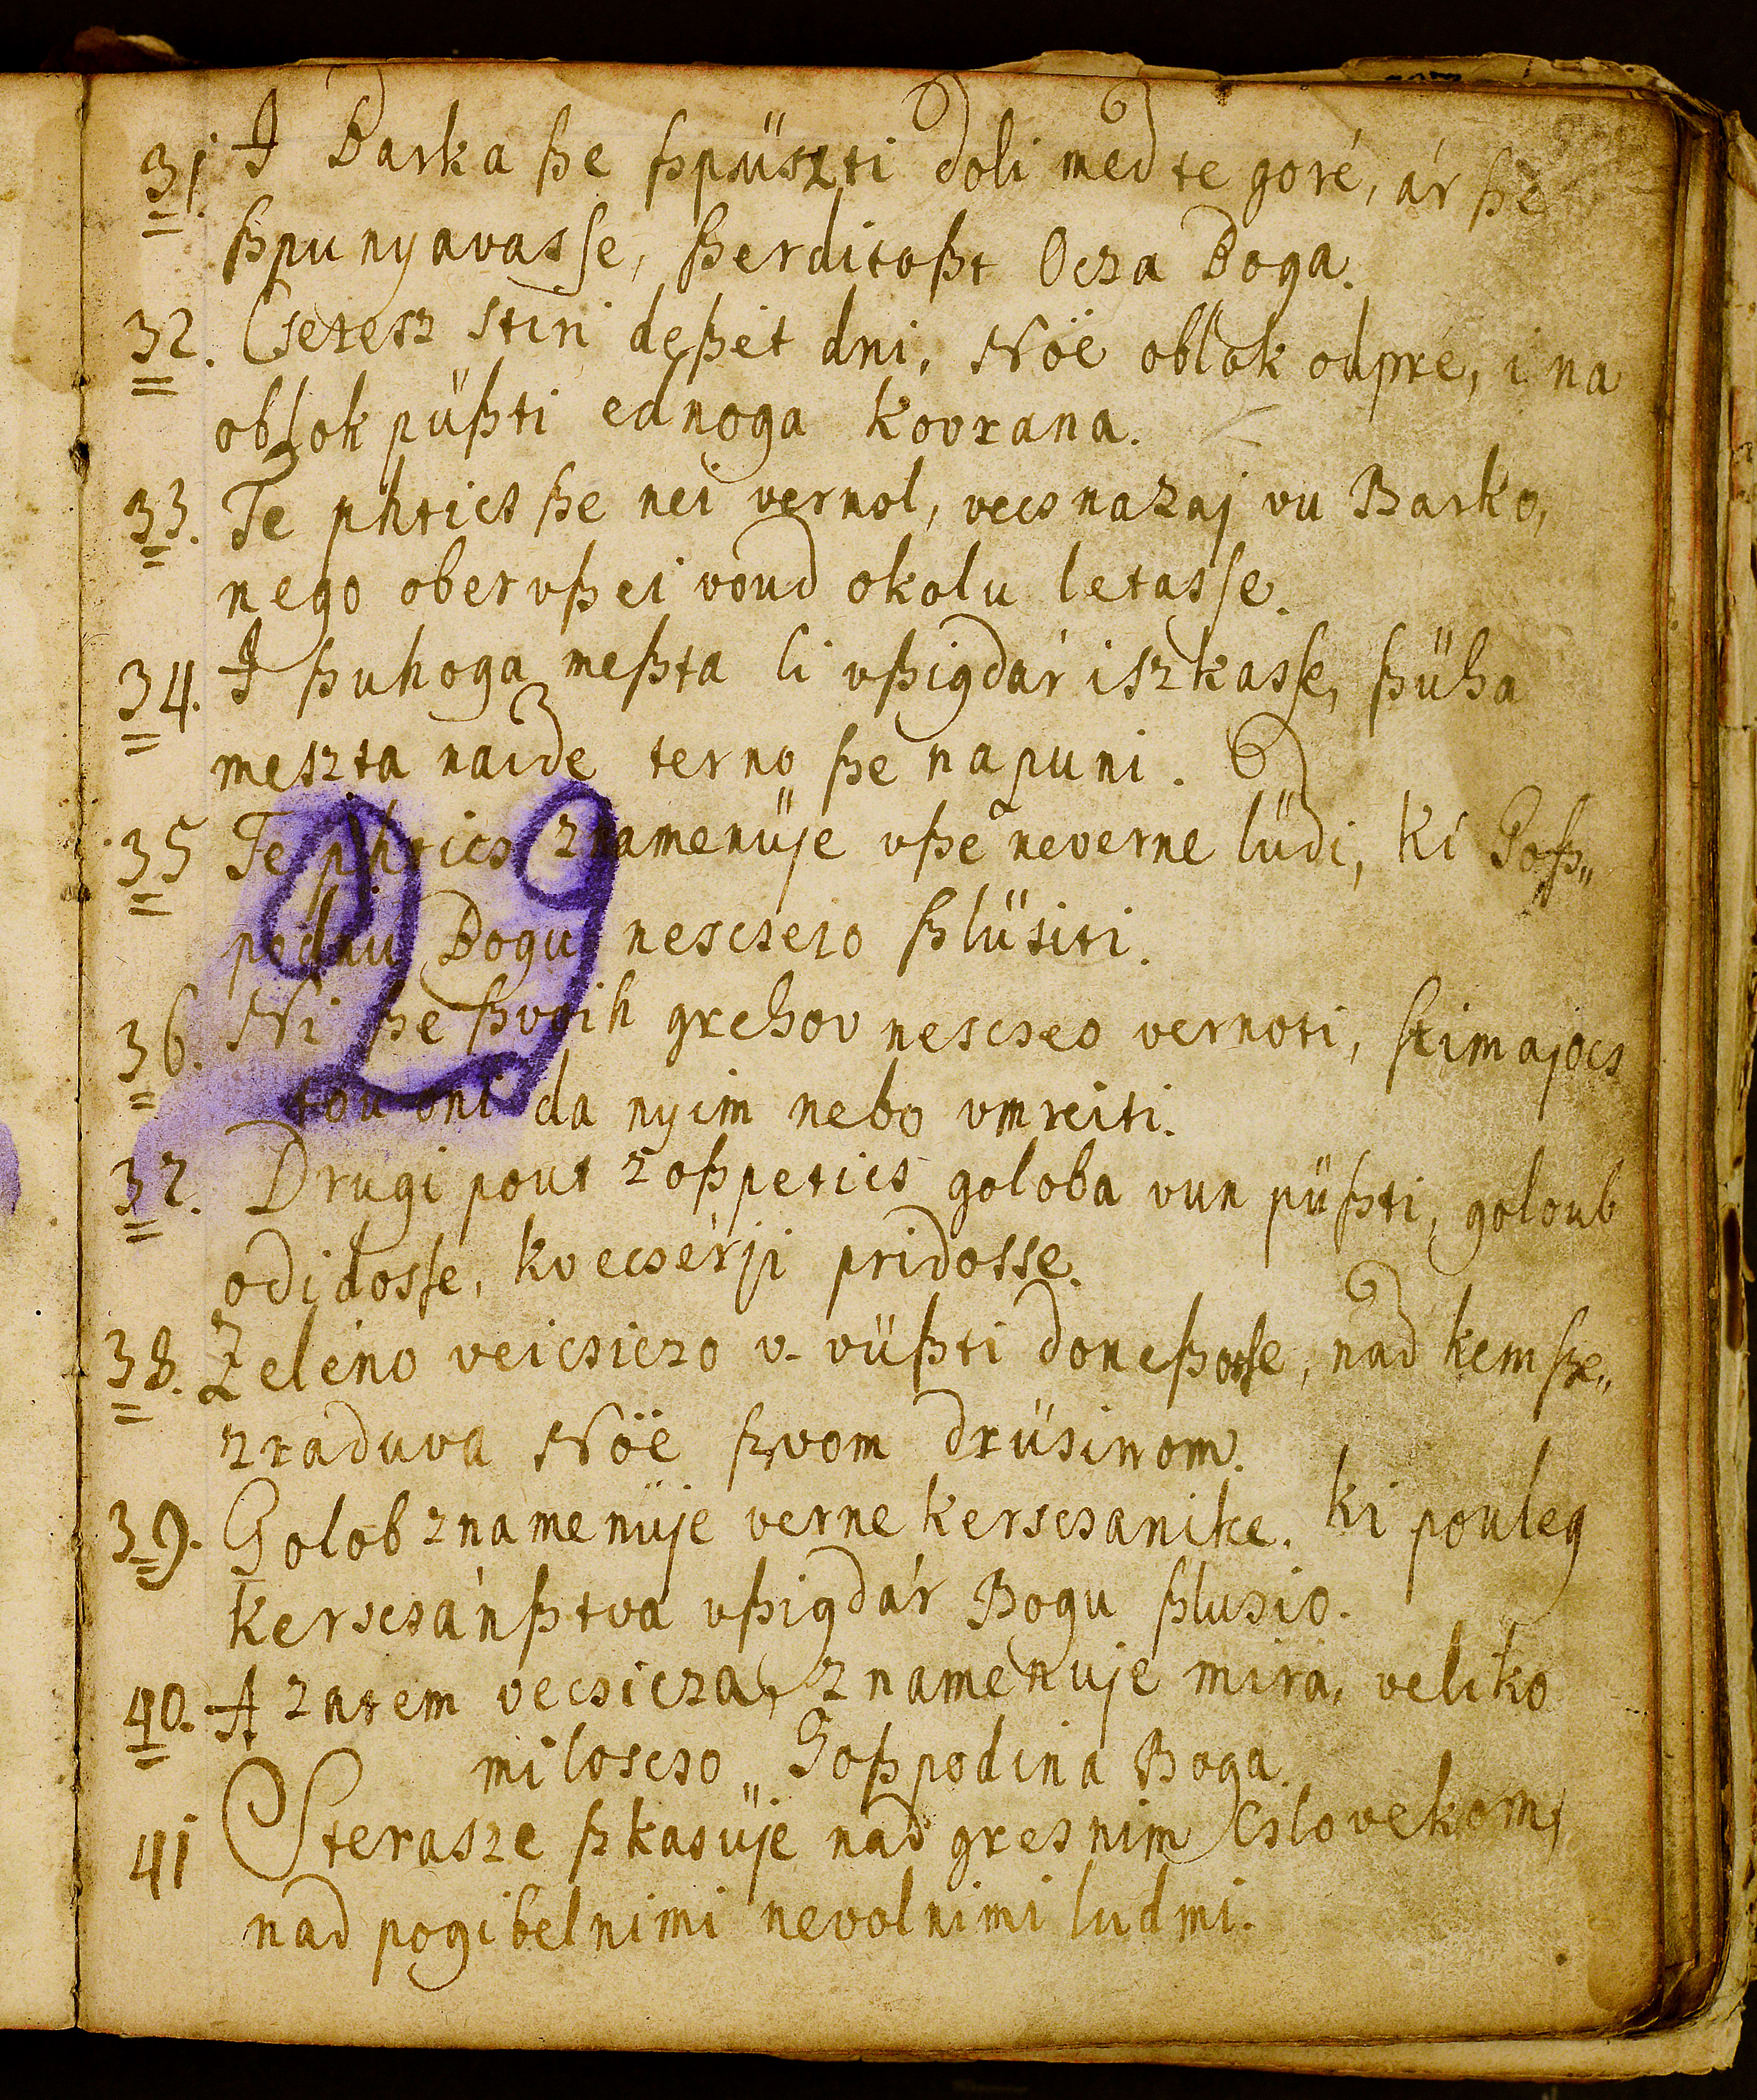 31. I Barka ße ßpüszti doli med te goré, ár ße
ßpunyavasse, ßerditoßt Ocza Boga.
32. Csetesz stiri deßét dni, Nöe oblok odpré, i na
oblok püßti ednoga kovrana.
33. Te phtics ße nei vernol, vecs nazaj vu Barko,
nego ober vßei voud okolu letasse.
34. I ßuhoga meßta li vßigdár iszkasse, ßüha
meszta naide terno ße napuni.
35 Te phtics znamenüje vße neverne lüdi, ki Goß„
podnu Bogu nescsejo ßlüsiti.
36. Ni ße ßvoih grehov nescseo vernoti, stimajocs
tou oni da nyim nebo vmreiti.
37. Drugi pout zoßpetics goloba vun püßti, goloub
odidosse, kvecsérji pridosse.
38. Zeléno veicsiczo v- vüßti doneßosse, nad kem ße„
zraduva Nöe ßvom drüsinom.
39. Golob znamenüje verne kerscsanike. ki pouleg
kerscsánßtva vßigdár Bogu ßlusio.
40. A zatem vecsicza, znamenuje mira, veliko
miloscso„ Goßpodina Boga.
41 Sterasze ßkasüje nad gresnim Cslovekom,
nad pogibelnimi nevolnimi ludmi.
29